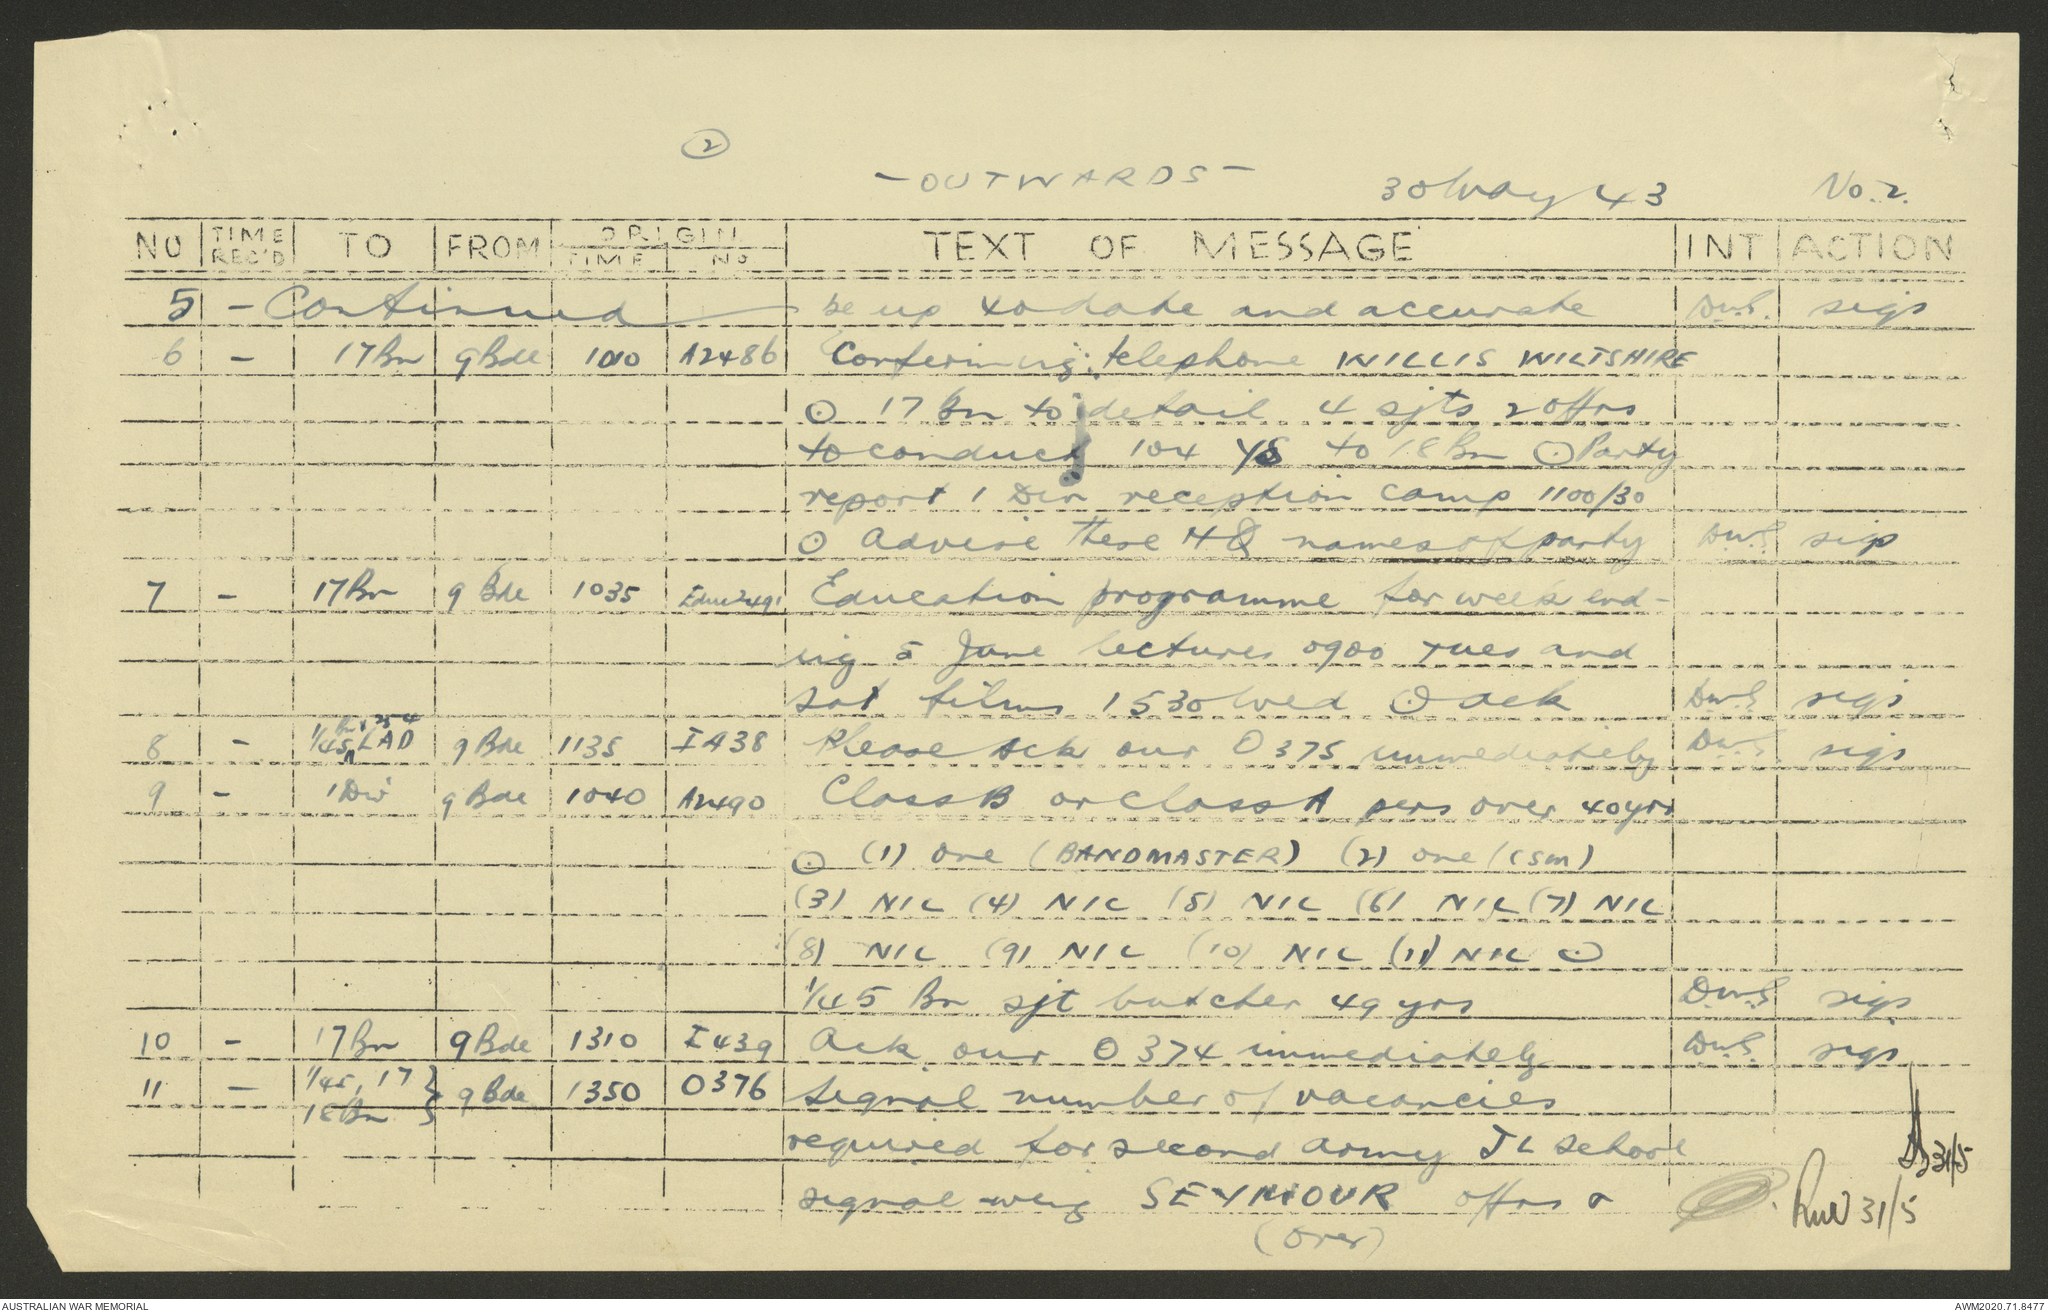 2
- OUTWARDS - 30 May 43 No. 2.
NO TIME REC'D TO FROM ORIGIN TIME NO TEXT OF MESSAGE INT ACTION
5 - Continued be up to date and accurate D.W.S. sigs
6 - 17 Bn 9 Bde 1010 A2486 Confirming telephone WILLIS WILTSHIRE
⊙ 17 Bn to detail 4 sjts 2 offrs
to conduct 104 YS to 18 Bn ⊙ Party
report 1 Div reception camp 1100/30
⊙ Advise these HQ names of party D.W.S. sigs
7 - 17 Bn 9 Bde 1035 Educ2491 Education programme for week end-
ing 5 June lectures 0900 Tues and
sat films 1530 Wed ⊙ ack D.W.S. sigs
8 - 1/45 Bn, 254 LAD 9 Bde 1135 I438 Please Ack our O375 immediately D.W.S. sigs
9 - 1 Div 9 Bde 1040 A2490 Class B or Class A pers over 40 yrs
⊙ (1) one (BANDMASTER) (2) one (CSM)
(3) NIL (4) NIL (5) NIL (6) NIL (7) NIL
(8) NIL (9) NIL (10) NIL (11) NIL ⊙
1/45 Bn sjt butcher 49 yrs D.W.S. sigs
10 - 17 Bn 9 Bde 1310 I439 Ack our O374 immediately D.W.S. sigs
11 - 1/45, 17 } 9 Bde 1350 O376 signal number of vacancies
18 Bn }
required for second army JL school
signal wing SEYMOUR offrs &
31/5
31/5
(over)
AUSTRALIAN WAR MEMORIAL AWM2020.71.8477